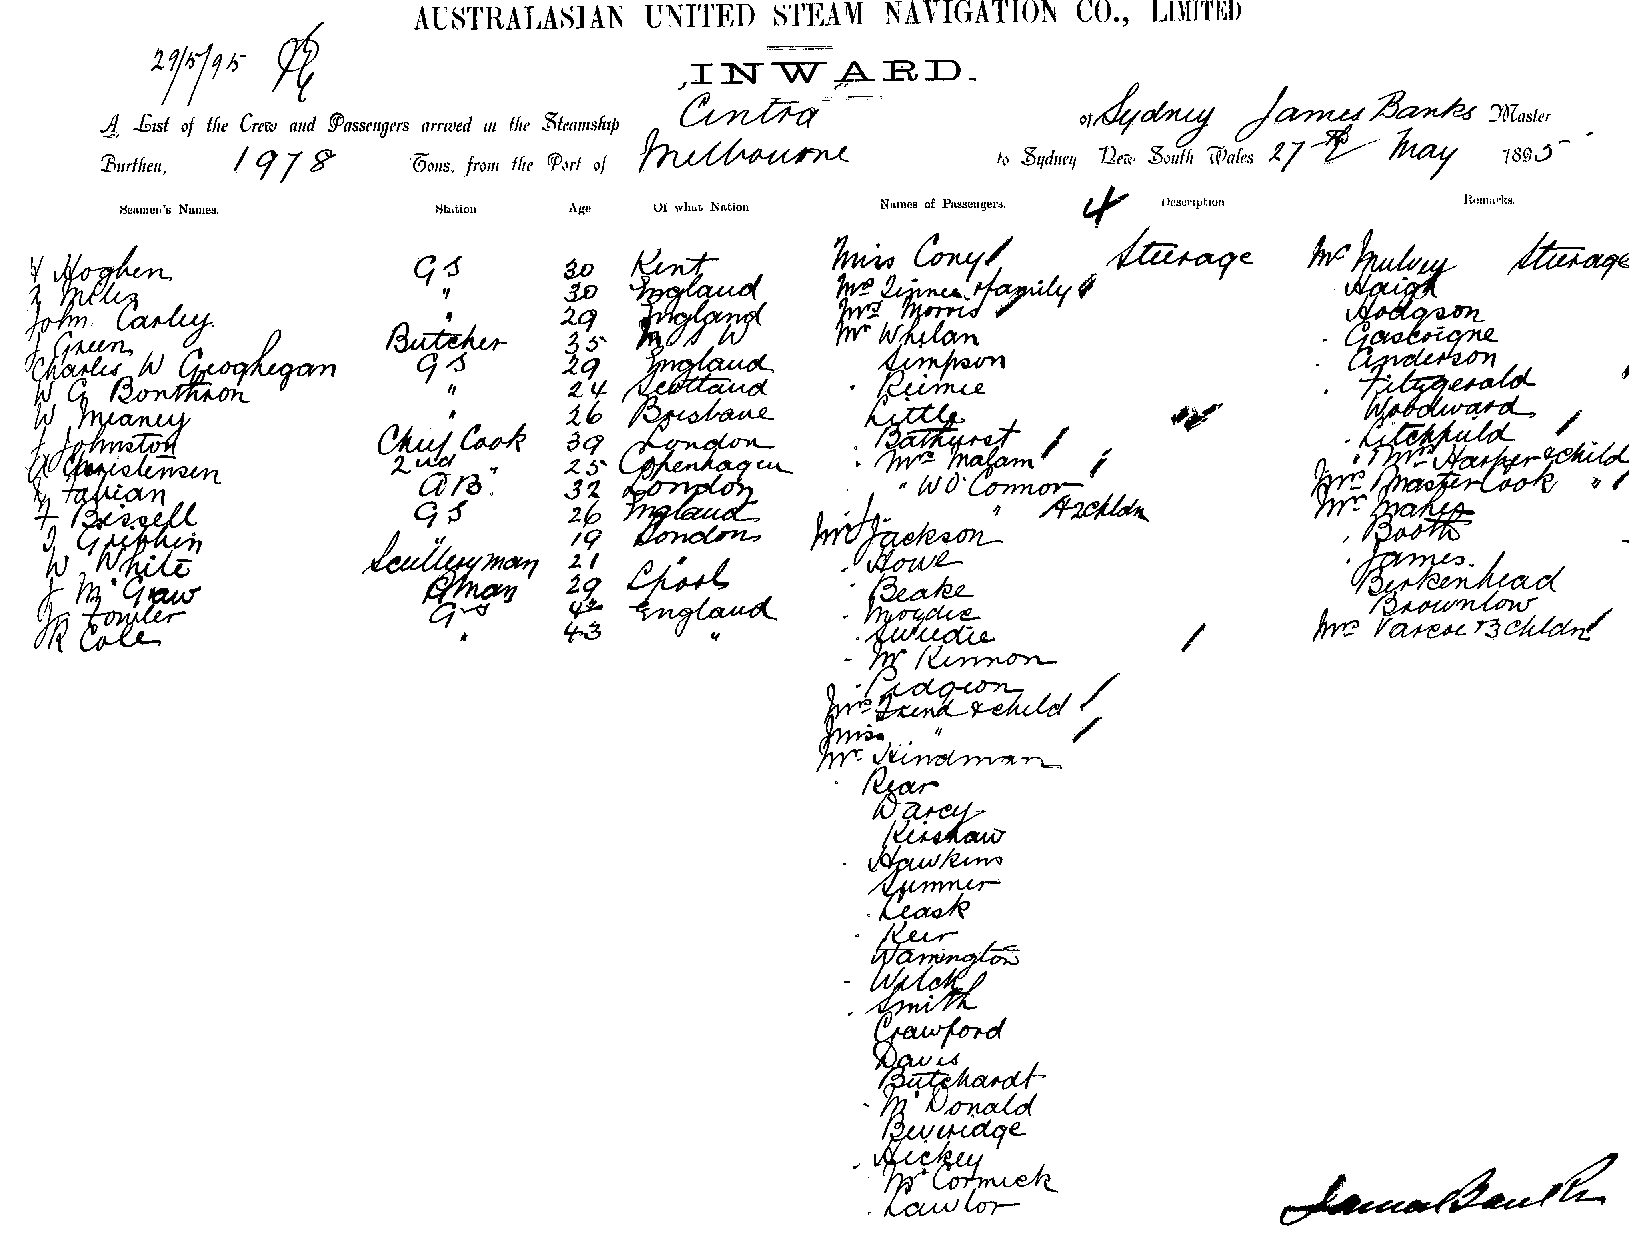 AUSTRALASIAN UNITED STEAM NAVIGATION CO., LIMITED
29/5/95
INWARD.
A List of the Crew and Passengers arrived in the Steamship Cintra of Sydney James Banks Master
Burthen, 1978 Tons, from the Port of Melbourne to Sydney New South Wales 27th May 1895
Seamen's Names. Station Age Of what Nation Names of Passengers. 4 Description Remarks.
Hoghen G S 30 Kent
" 30 England
John Carley " 29 England
J Green Butcher 35 N S W
Charles W Geoghegan G S 29 England
W G Bonthron " 24 Scotland
W Meaney " 26 Brisbane
J Johnston Chief Cook 39 London
Christensen 2nd " 25 Copenhagen
Fabian A B. 32 London
F Bissell G S 26 England
Griffin " 19 London
W White Scullery man 21 "
J McGraw 29
Fowler G S 42 England
R Cole " 43 "
Miss Cony Steerage
Mrs & family
Mrs Morris
Mr Whelan
Simpson
Reimie
Little
Bathurst
Mrs Malam
" W O'Connor
" & 2 chldn
Mr Jackson
Howe
Beake
Moydie
Swiedie
McKinnon
Pidgeon
Mrs Friend & child
Miss "
Mr Hindman
Rear
Darcy
Kershaw
Hawkins
Sumner
Leask
Keir
Warrington
Welch
Smith
Crawford
Davis
Butchardt
McDonald
Beveridge
Hickey
McCormick
Lawlor
Mr Mulvey Steerage
Haigh
Hodgson
Gascoigne
Anderson
Fitzgerald
Woodward
Litchfield
Mrs Harper & child
Mrs Master Cook "
Mr Maher
Booth
James.
Birkenhead
Brownlow
Mrs Varcoe & 3 chldn
James Banks